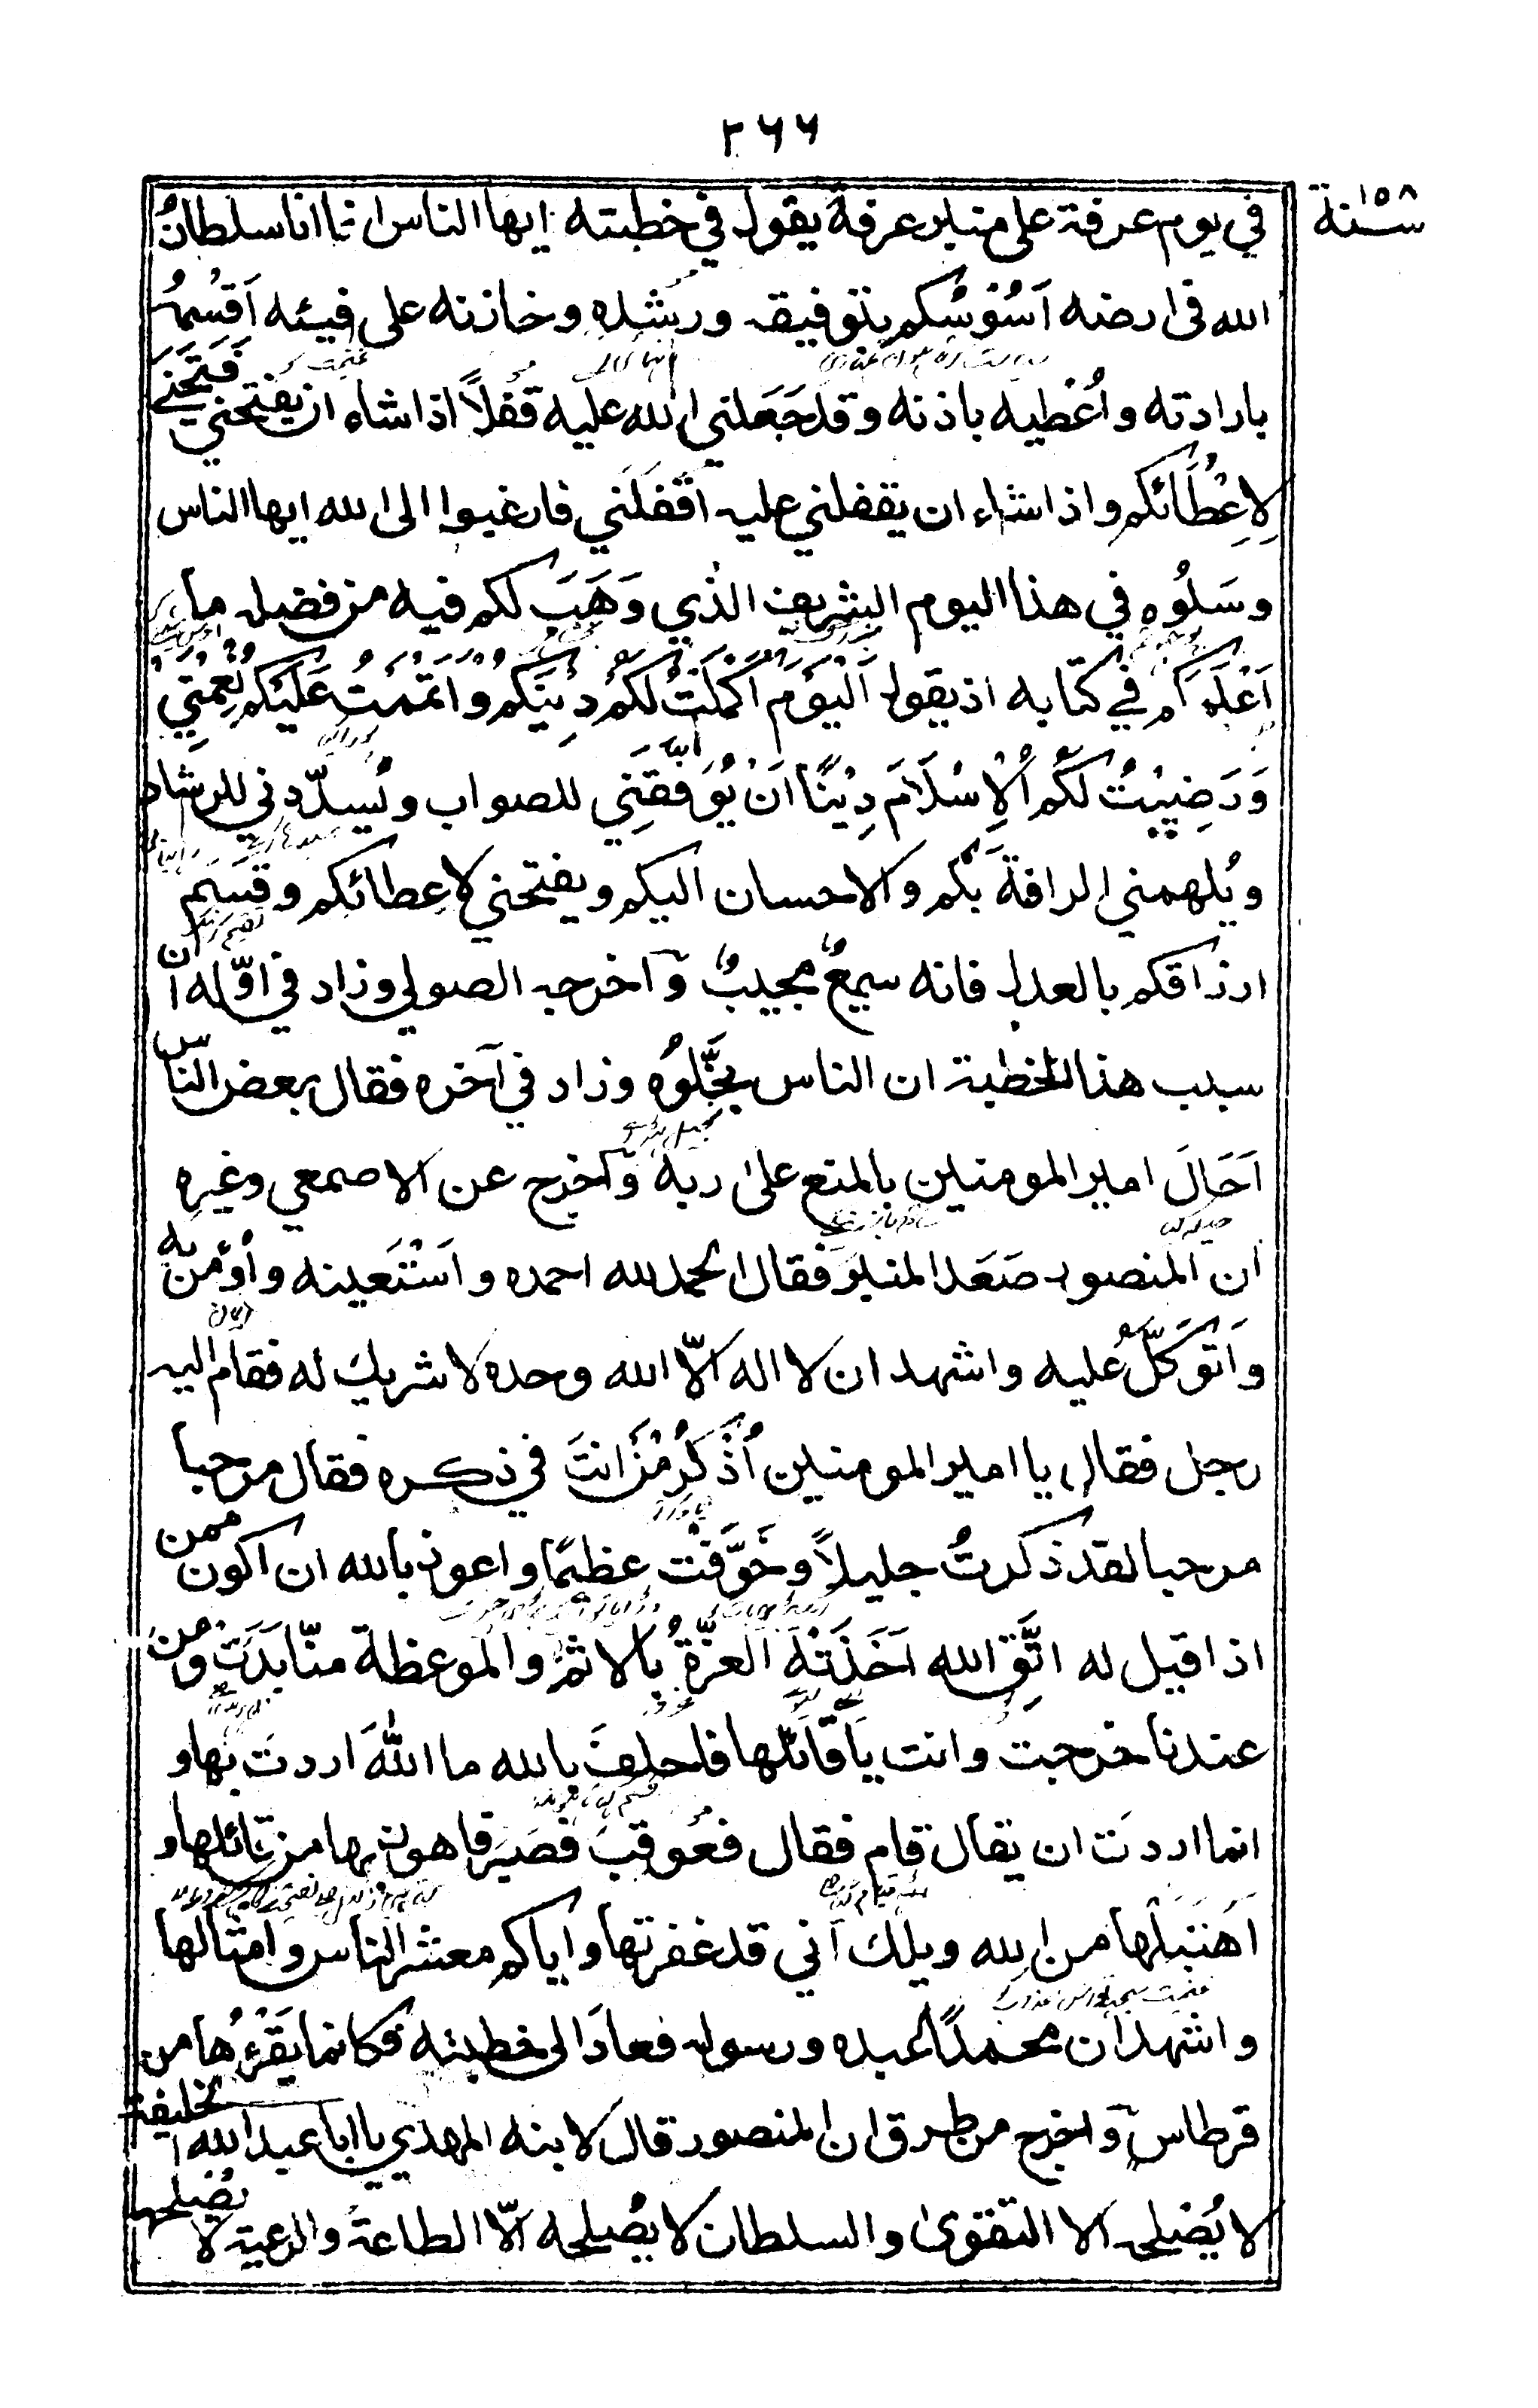 ٢٦٦
سنة ١٥٨
في يوم عرفة على منبر عرفة يقول في خطبته ايها الناس انما انا سلطانُ
الله في ارضه اَسُوْسُكم بتوفيقه ورشده وخازنه على فيئه اَقسْمُه
بارادته واُعْطيه باذنه وقد جَعَلني الله عليه قفلاً اذا شاء ان يفتحني فَتَحَني
لِاِعْطَائكم واذا شاء ان يقفلني عليه اقْفَلَني فارغبوا الى الله ايها الناس
وسَلُوْه في هذا اليوم الشريف الذي وَهَبَ لكم فيه من فضله ما
اَعْلَمَكم في كتابه اذ يقول اَلْيَوْمَ اَكْمَلْتُ لَكُمْ دِيْنَكُمْ وَاَتْمَمْتُ عَلَيْكُمْ نِعْمَتِيْ
وَرَضِيْتُ لَكُمُ الْاِسْلَامَ دِيْنًا اَنْ يُوَفِّقَنِي للصواب ويُسدّدني للرشاد
ويُلهمني الرافة بكم والاحسان اليكم ويفتحني لاعطائكم وقسَم
ارزاقكم بالعدل فانه سميعٌ مجيبٌ وآخرجه الصولي وزاد في اوّله ان
سبب هذا الخطبة ان الناس بخَّلُوْه وزاد في آخره فقال بعض النّاس
اَحَالَ امير المومنين بالمنع على ربه وآخرج عن الاصمعي وغيره
ان المنصور صَعَد المنبر فقال الحمد لله احمده واَسْتَعينه واُوْمن به
واَتَوَكّلُ عليه واشهد ان لا اله الّا الله وحده لا شريك له فقام اليه
رجل فقال يا امير المومنين اُذْكُرْ مَنْ اَنتَ في ذكره فقال مرحبا
مرحبا لقد ذكرتُ جليلاً وخَوَّفْت عظيمًا واعوذ بالله ان اكون ممن
اذا قيل له اتَّقِ الله اَخَذَتْهُ العزّةُ بالاثم والموعظة منّا بَدَتْ ومن
عندنا خرجت وانت يا قائلها فاحلفَ بالله ما اللّٰهَ اردتَ بها و
انما اردتَ ان يقال قام فقال فعُوقبَ فصَبَر فاهون بها من قائلها و
اهْتَبَلَها من الله ويلك اني قد غفرتها واياكم معشر الناس وامثالها
واشهد ان محمدًا عبده ورسوله فعادَ الى خطبته فكانما يَقْرَءُها من
قرطاس وآخرج من طرق ان المنصور قال لابنه المهدي يا ابا عبد الله الخليفة
لا يُصْلحه الا التقوىٰ والسلطان لا يصُلحه الّا الطاعة والرعية لا يُصْلحها